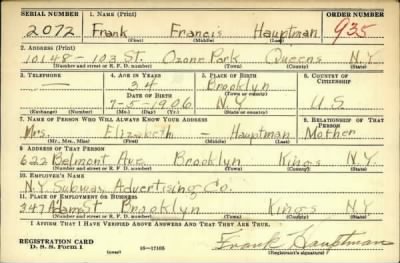 SERIAL NUMBER 1. NAME (Print) ORDER NUMBER
2072 Frank Francis Hauptman 935
(First) (Middle) (Last)
2. ADDRESS (Print)
10148-103 St. Ozone Park Queens N.Y.
(Number and street or R. F. D. number) (Town) (County) (State)
3. TELEPHONE 4. AGE IN YEARS 5. PLACE OF BIRTH 6. COUNTRY OF CITIZENSHIP
— 34 Brooklyn
DATE OF BIRTH (Town or county)
7-5-1906 N.Y. U.S.
(Exchange) (Number) (Mo.) (Day) (Yr.) (State or country)
7. NAME OF PERSON WHO WILL ALWAYS KNOW YOUR ADDRESS 8. RELATIONSHIP OF THAT PERSON
Mrs. Elizabeth — Hauptman Mother
(Mr., Mrs., Miss) (First) (Middle) (Last)
9. ADDRESS OF THAT PERSON
622 Belmont Ave. Brooklyn Kings N.Y.
(Number and street or R. F. D. number) (Town) (County) (State)
10. EMPLOYER'S NAME
N.Y. Subway Advertising Co.
11. PLACE OF EMPLOYMENT OR BUSINESS
347 Adams St Brooklyn Kings N.Y.
(Number and street or R. F. D. number) (Town) (County) (State)
I AFFIRM THAT I HAVE VERIFIED ABOVE ANSWERS AND THAT THEY ARE TRUE.
REGISTRATION CARD
D. S. S. Form 1 (over) 16-17105 Frank Hauptman
(Registrant's signature)